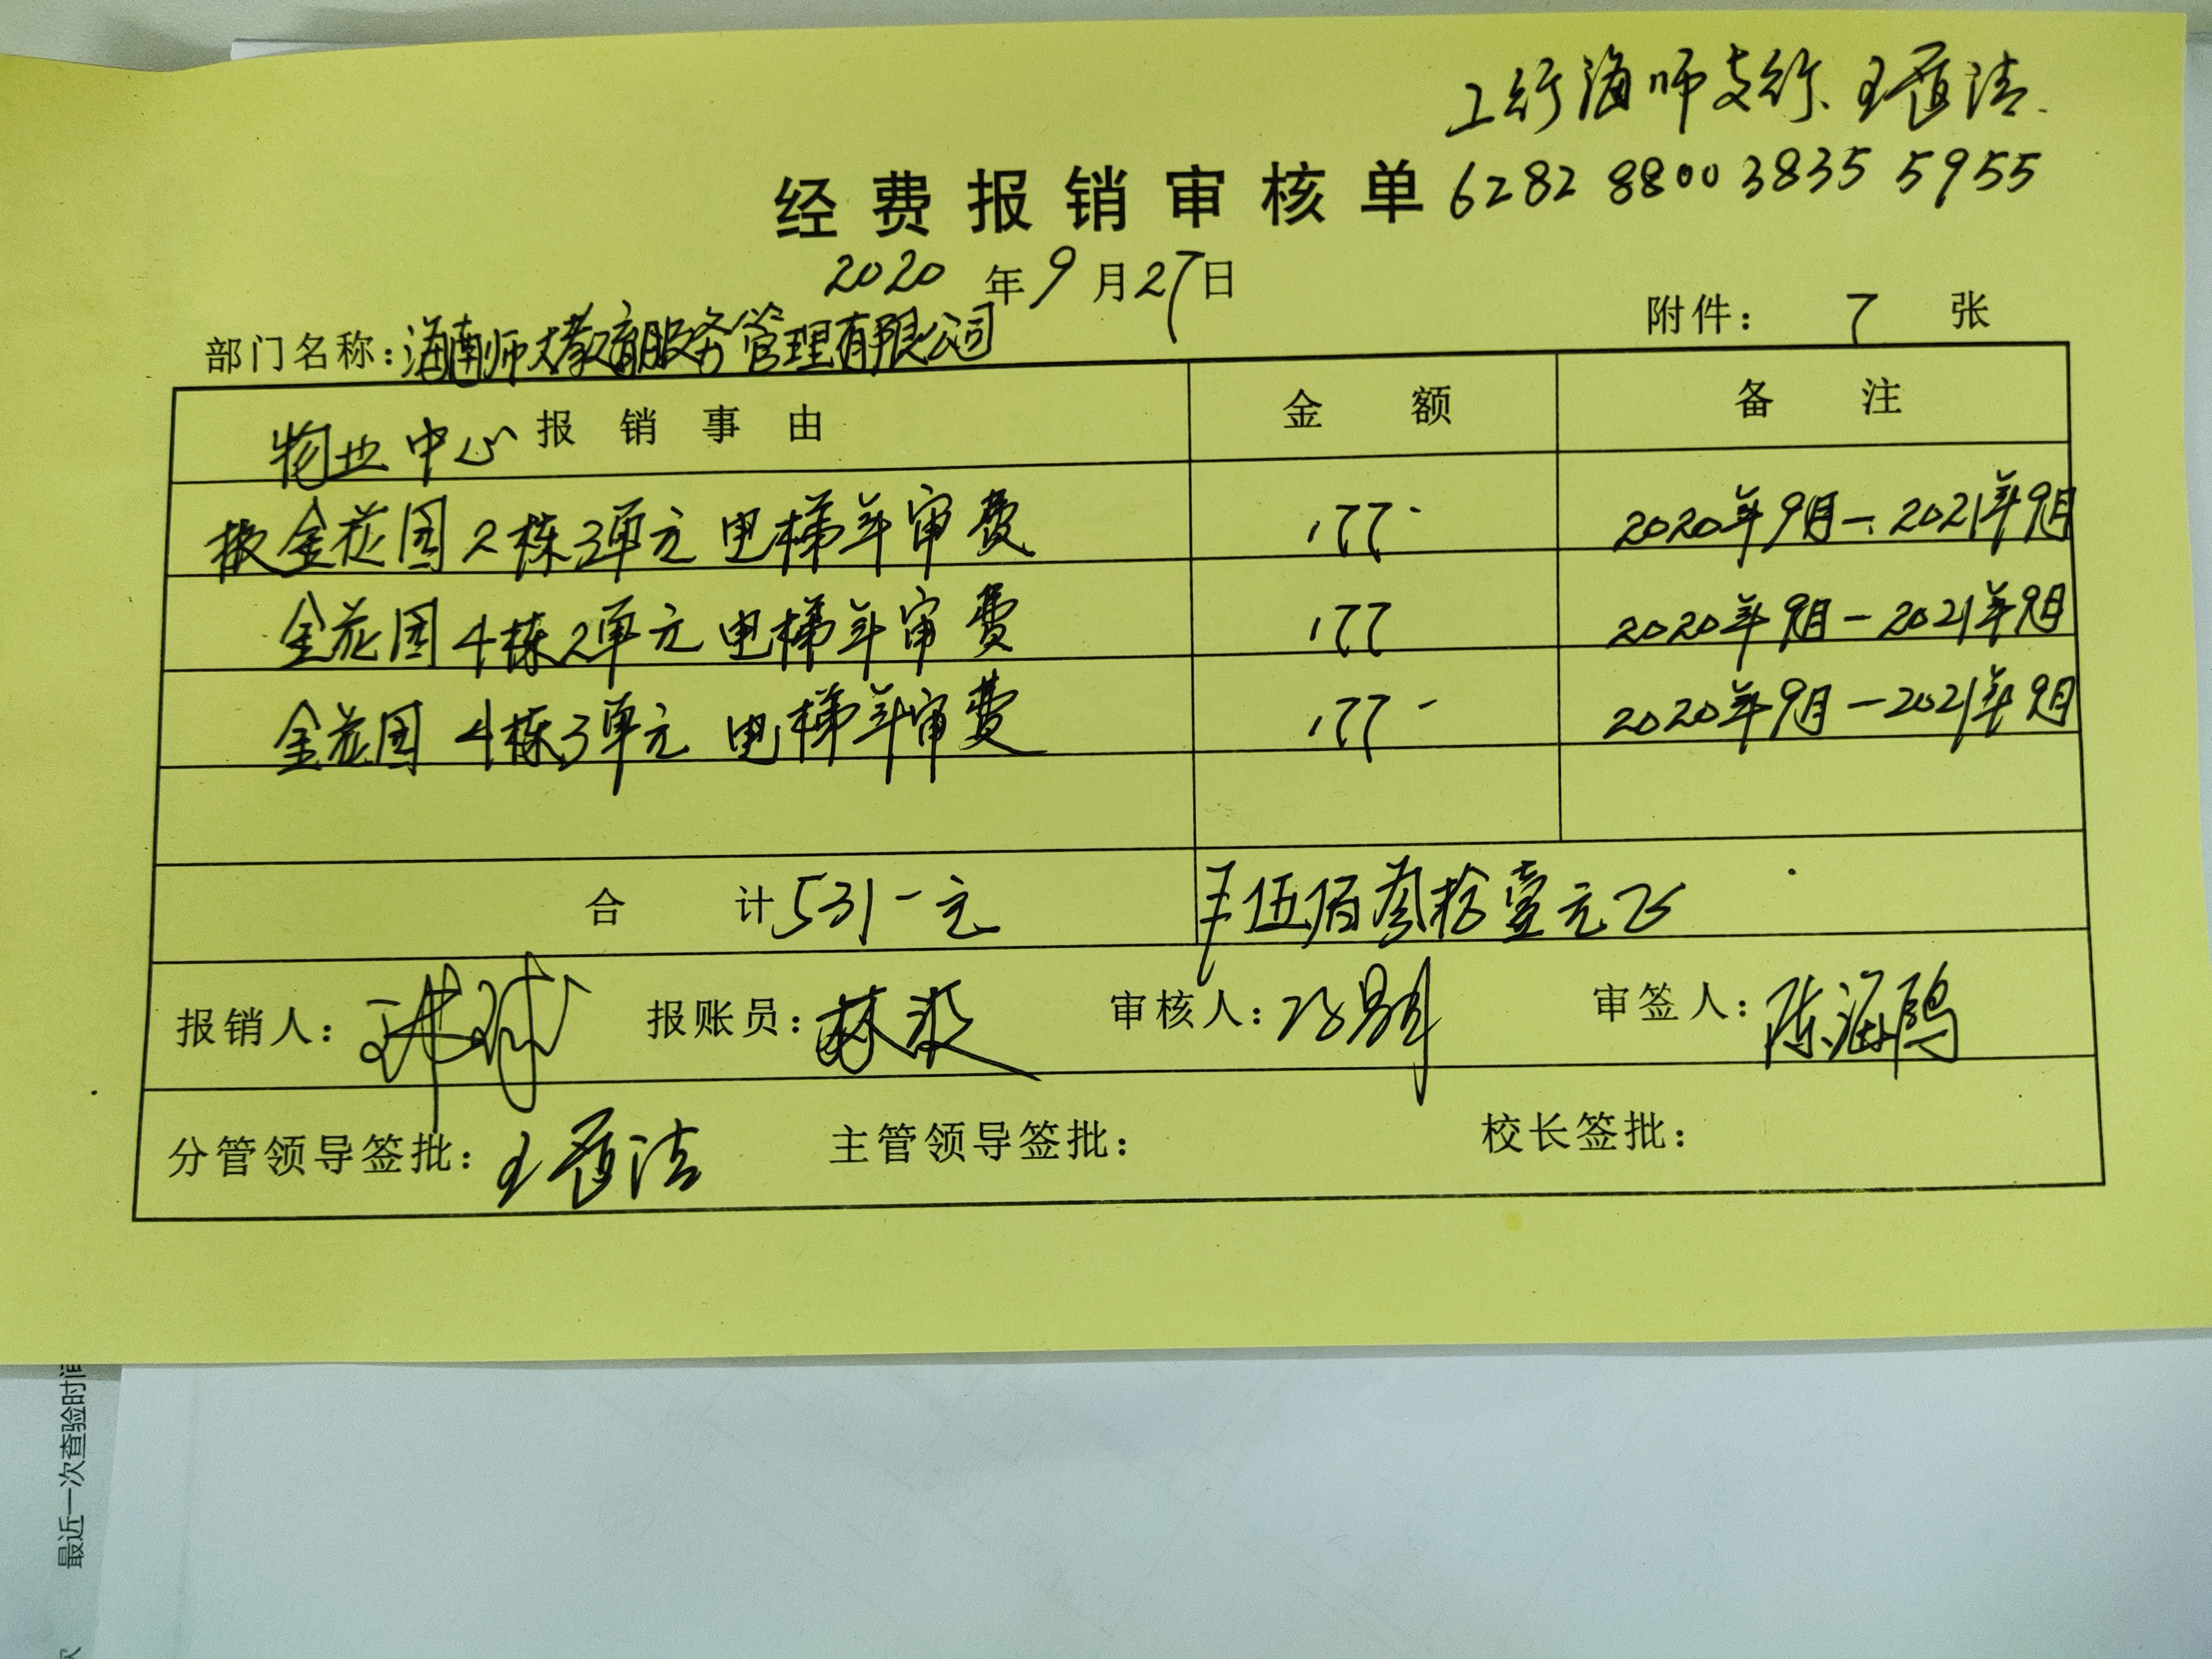 工行海师支行、王
经费报销审核单 6282 8800 3835 5955
2020 年 9 月 27 日
部门名称:海南师大教育服务管理有限公司 附件: 7 张
物业中心 报销事由 金额 备注
报金花园2栋3单元 电梯年审费 177- 2020年9月-2021年9月
金花园4栋2单元 电梯年审费 177 2020年9月-2021年9月
金花园4栋3单元 电梯年审费 177- 2020年9月-2021年9月
合计 531-元 伍佰叁拾壹元正
报销人: 报账员:林 审核人: 审签人:陈海鹃
分管领导签批:王 主管领导签批: 校长签批:
最近一次查验时间